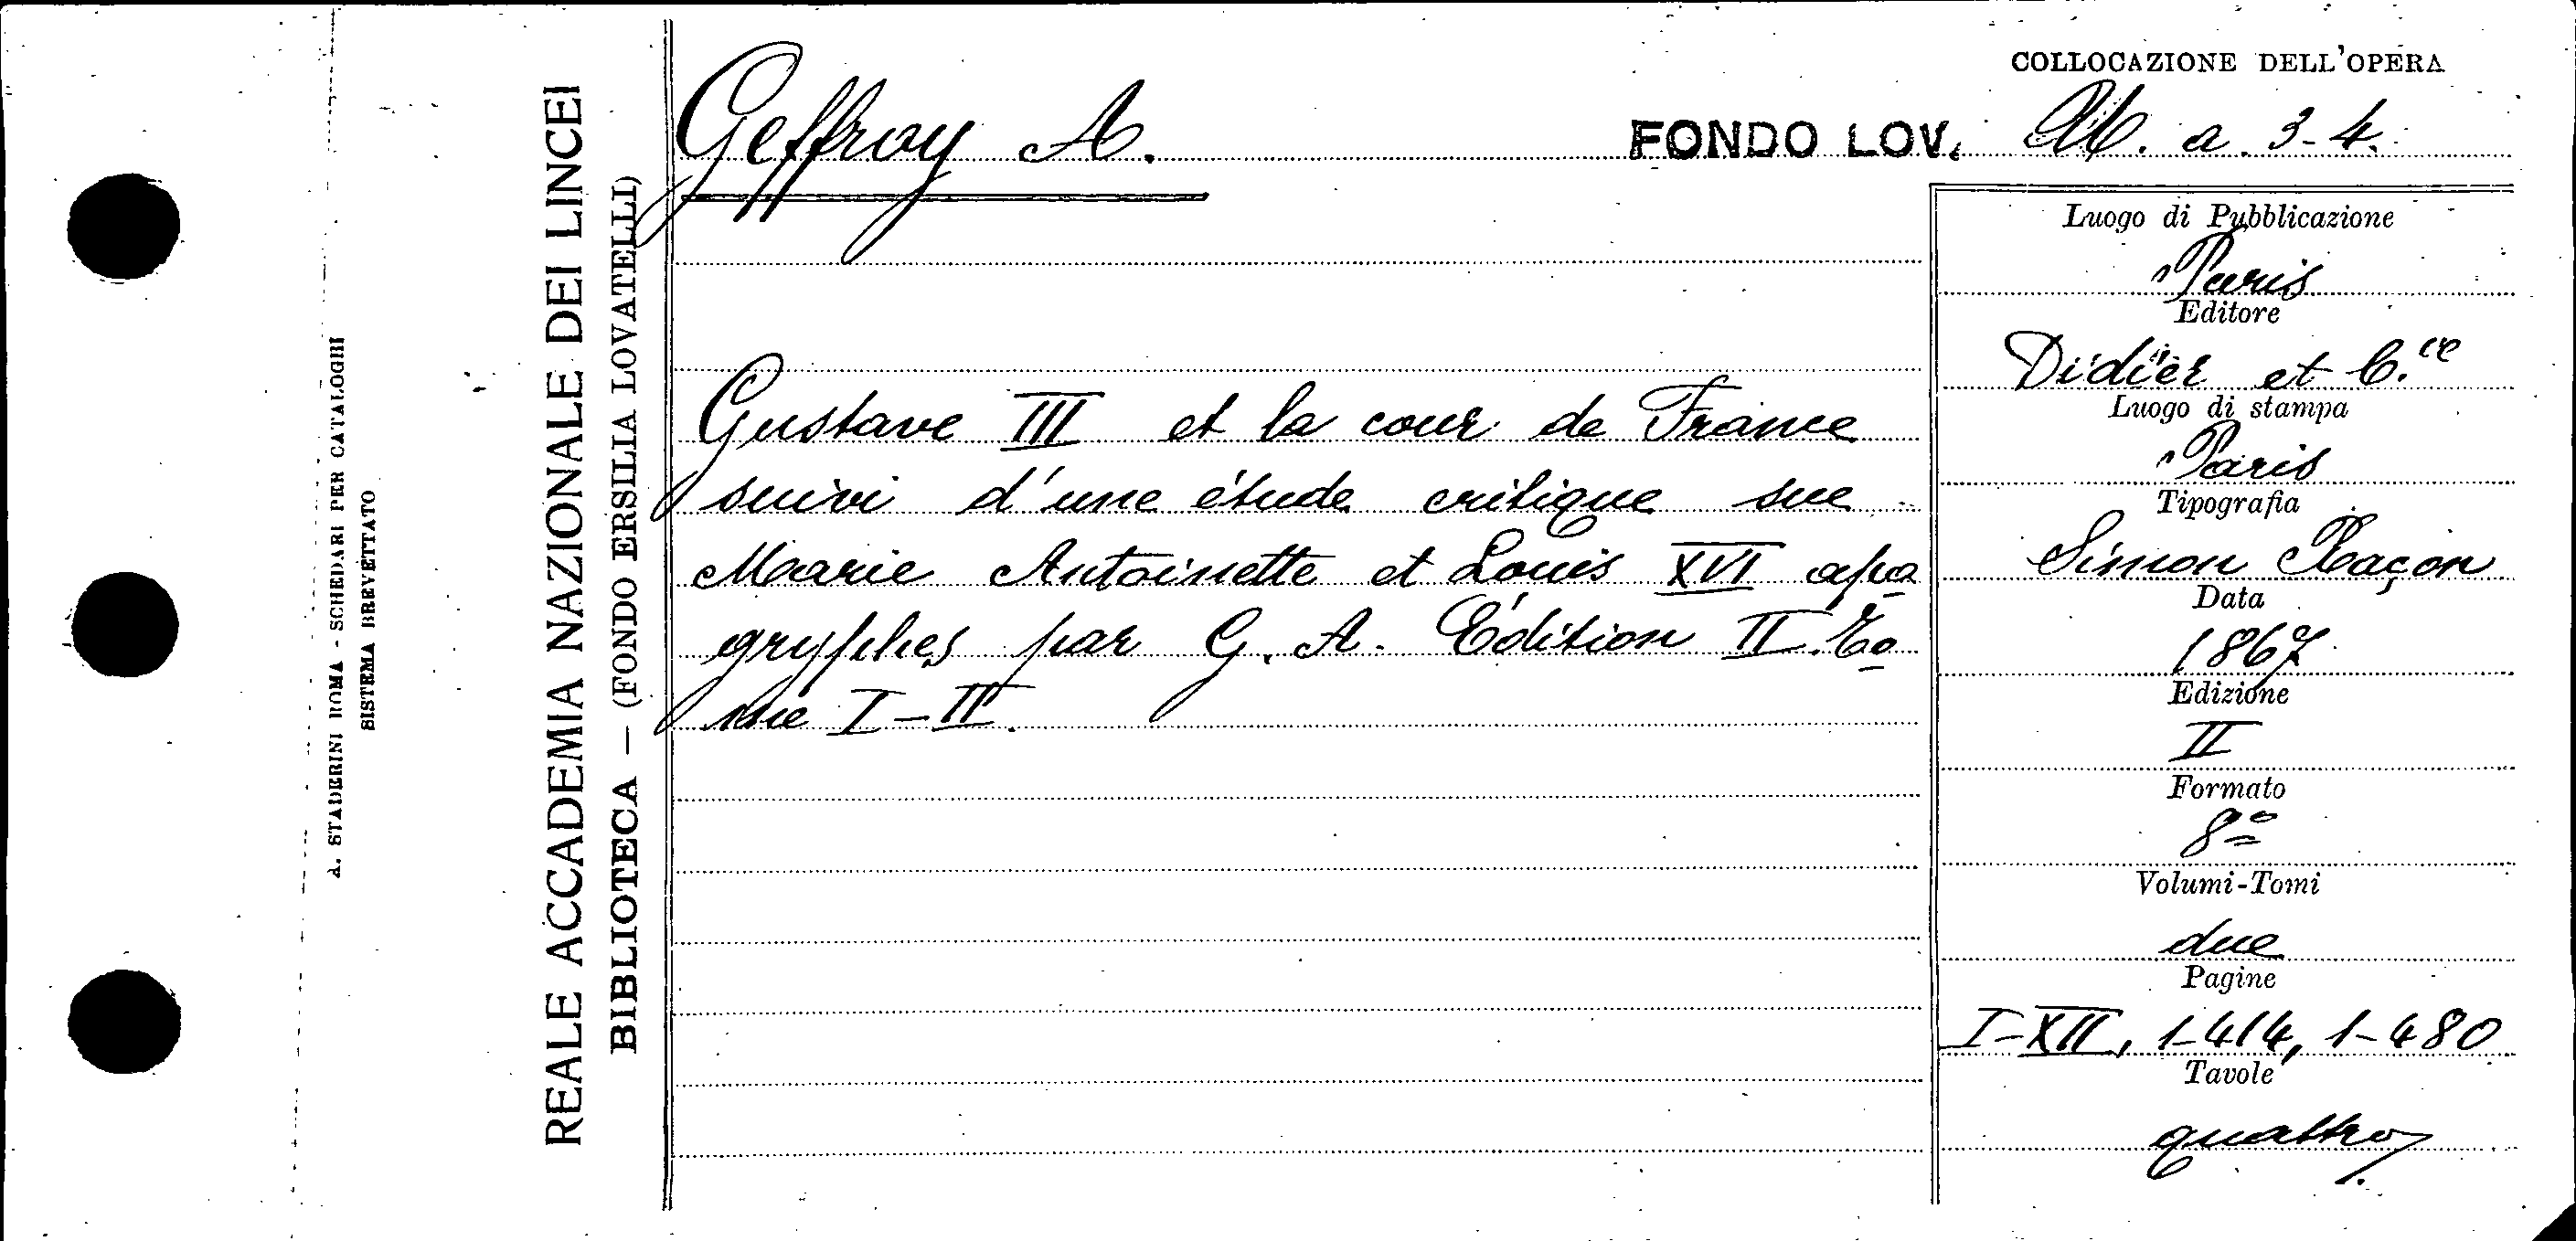 A. STADERINI ROMA - SCHEDARI PER CATALOGHI
SISTEMA BREVETTATO
REALE ACCADEMIA NAZIONALE DEI LINCEI
BIBLIOTECA — (FONDO ERSILIA LOVATELLI)
COLLOCAZIONE DELL'OPERA
Geffroy A.
FONDO LOV. a. 3-4.
Gustave III et la cour de France
suivi d'une étude critique sur
Marie Antoinette et Louis XVI apo
gryphes par G. A. Édition II. To
me I-II.
Luogo di Pubblicazione
Paris
Editore
Didier et C.ie
Luogo di stampa
Paris
Tipografia
Simon Raçon
Data
1867
Edizione
II
Formato
8º
Volumi-Tomi
due
Pagine
I-XII, 1-414, 1-480
Tavole
quattro.